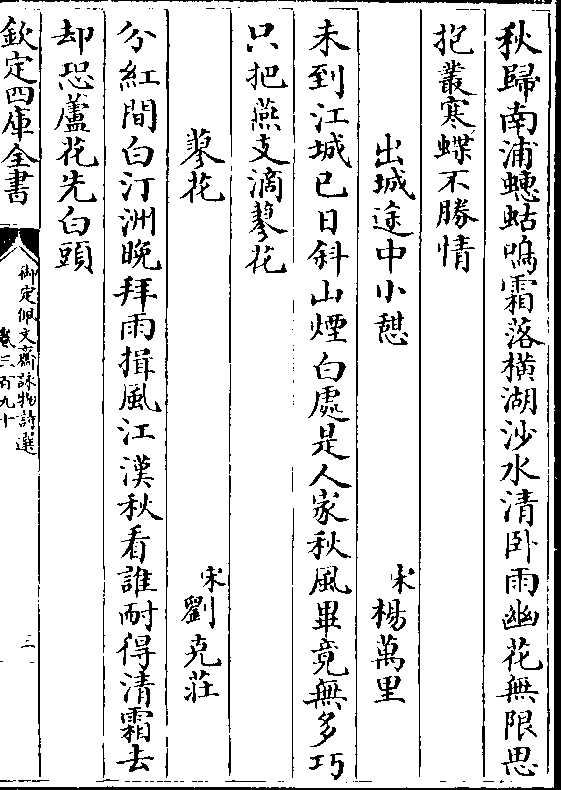 秋歸南浦蟪蛄鳴霜落橫湖沙水清卧雨幽花無限思
抱叢寒蝶不勝情
出城途中小憇 宋楊萬里
未到江城已日斜山煙白處是人家秋風畢竟無多巧
只把燕支滴蓼花
蓼花 宋劉克莊
分紅間白汀洲晚拜雨揖風江漢秋看誰耐得清霜去
却恐蘆花先白頭
欽定四庫全書
御定佩文齋詠物詩選
卷三百九十
三